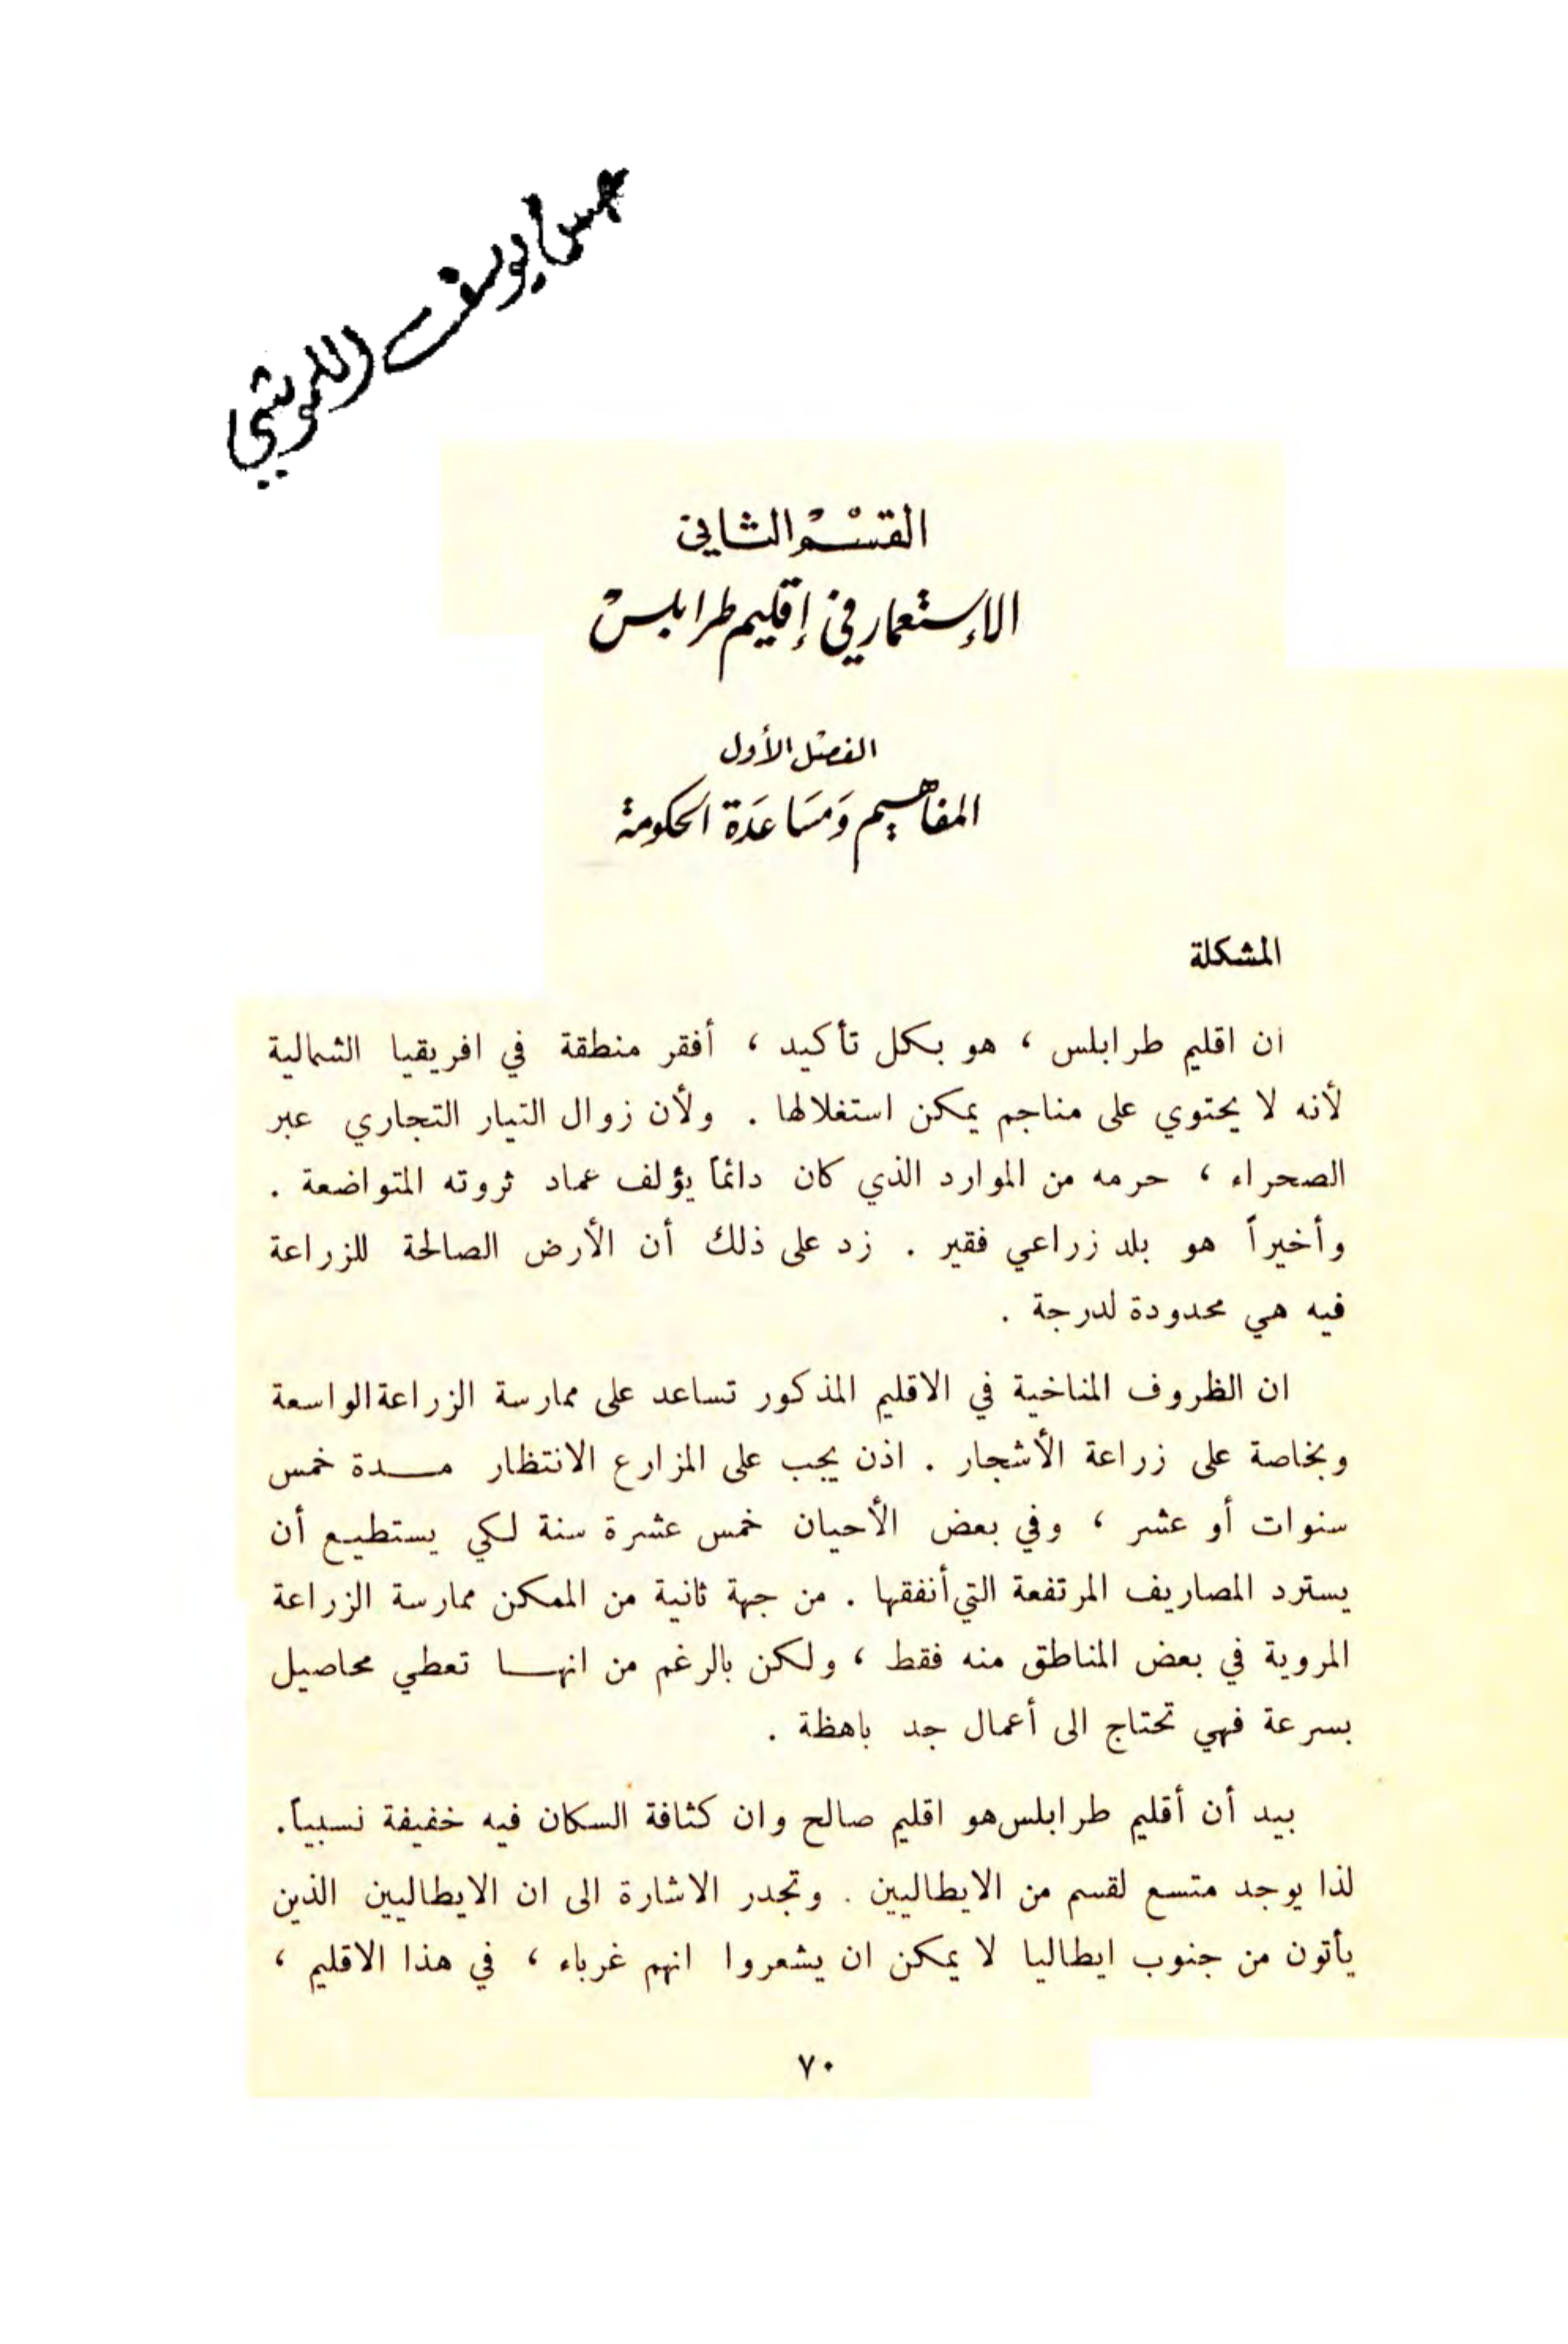 حسن يوسف اللموشي
القسم الثاني
الإستعمار في إقليم طرابلس
الفصل الأول
المفاهيم وَمسَاعَدَة الحكومة
المشكلة
ان اقليم طرابلس ، هو بكل تأكيد ، أفقر منطقة في افريقيا الشمالية
لأنه لا يحتوي على مناجم يمكن استغلالها . ولأن زوال التيار التجاري عبر
الصحراء ، حرمه من الموارد الذي كان دائماً يؤلف عماد ثروته المتواضعة .
وأخيراً هو بلد زراعي فقير . زد على ذلك أن الأرض الصالحة للزراعة
فيه هي محدودة لدرجة .
ان الظروف المناخية في الاقليم المذكور تساعد على ممارسة الزراعة الواسعة
وبخاصة على زراعة الأشجار . اذن يجب على المزارع الانتظار مـدة خمس
سنوات أو عشر ، وفي بعض الأحيان خمس عشرة سنة لكي يستطيع أن
يسترد المصاريف المرتفعة التي أنفقها . من جهة ثانية من الممكن ممارسة الزراعة
المروية في بعض المناطق منه فقط ، ولكن بالرغم من انهـا تعطي محاصيل
بسرعة فهي تحتاج الى أعمال جد باهظة .
بيد أن أقليم طرابلس هو اقليم صالح وان كثافة السكان فيه خفيفة نسبياً.
لذا يوجد متسع لقسم من الايطاليين . وتجدر الاشارة الى ان الايطاليين الذين
يأتون من جنوب ايطاليا لا يمكن ان يشعروا انهم غرباء ، في هذا الاقليم ،
٧٠